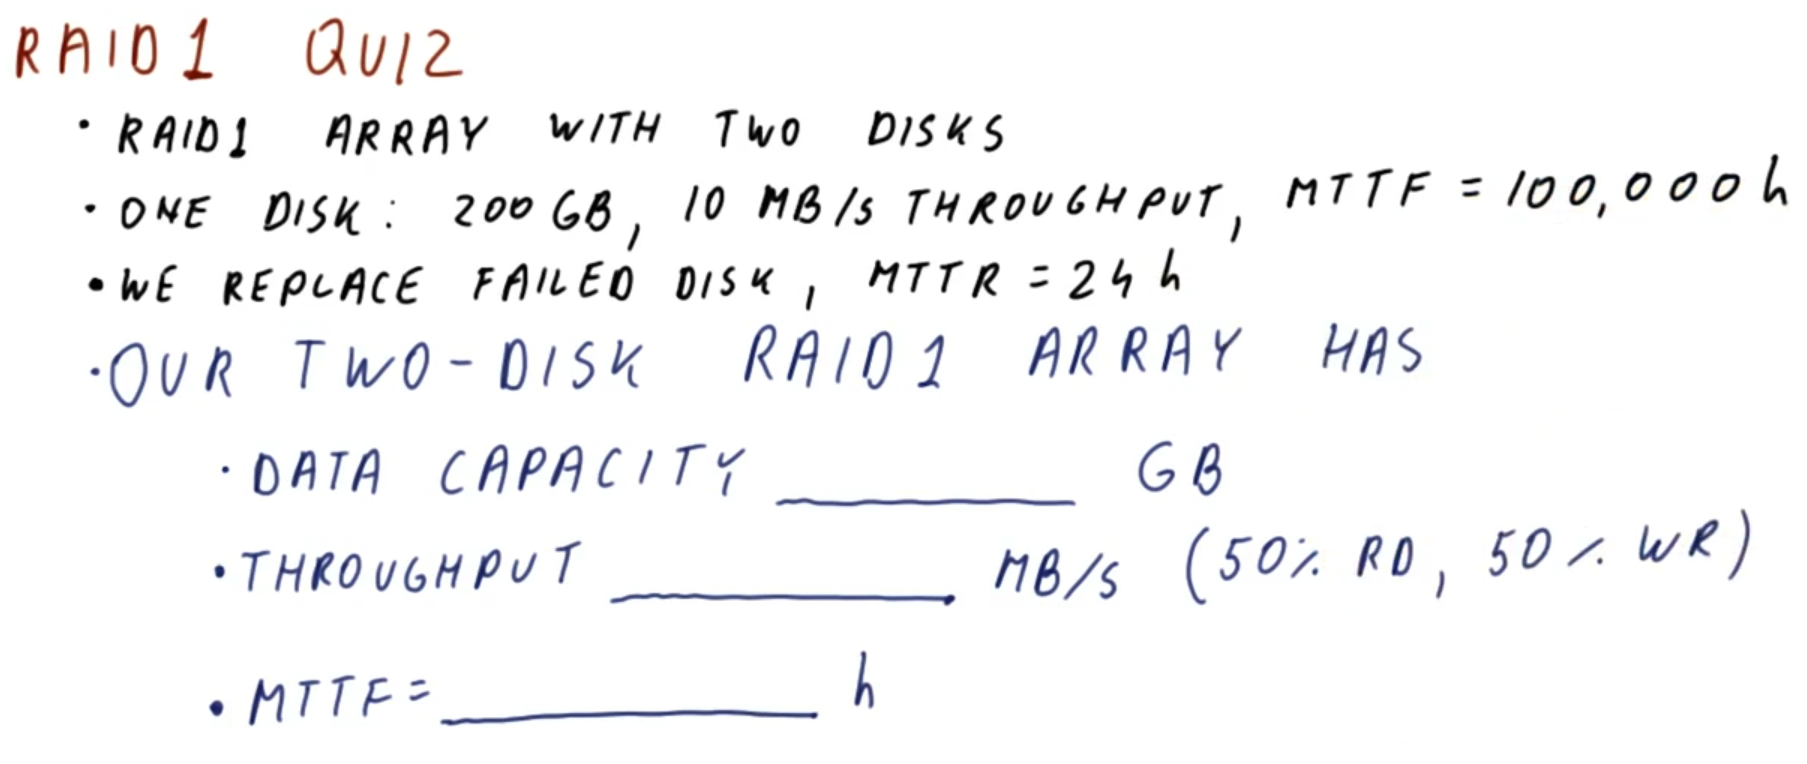 RAID1 QUIZ
• RAID1 ARRAY WITH TWO DISKS
• ONE DISK: 200 GB, 10 MB/s THROUGHPUT, MTTF = 100,000 h
• WE REPLACE FAILED DISK, MTTR = 24 h
• OUR TWO-DISK RAID1 ARRAY HAS
• DATA CAPACITY ________ GB
• THROUGHPUT ________ MB/s (50% RD, 50% WR)
• MTTF = ________ h